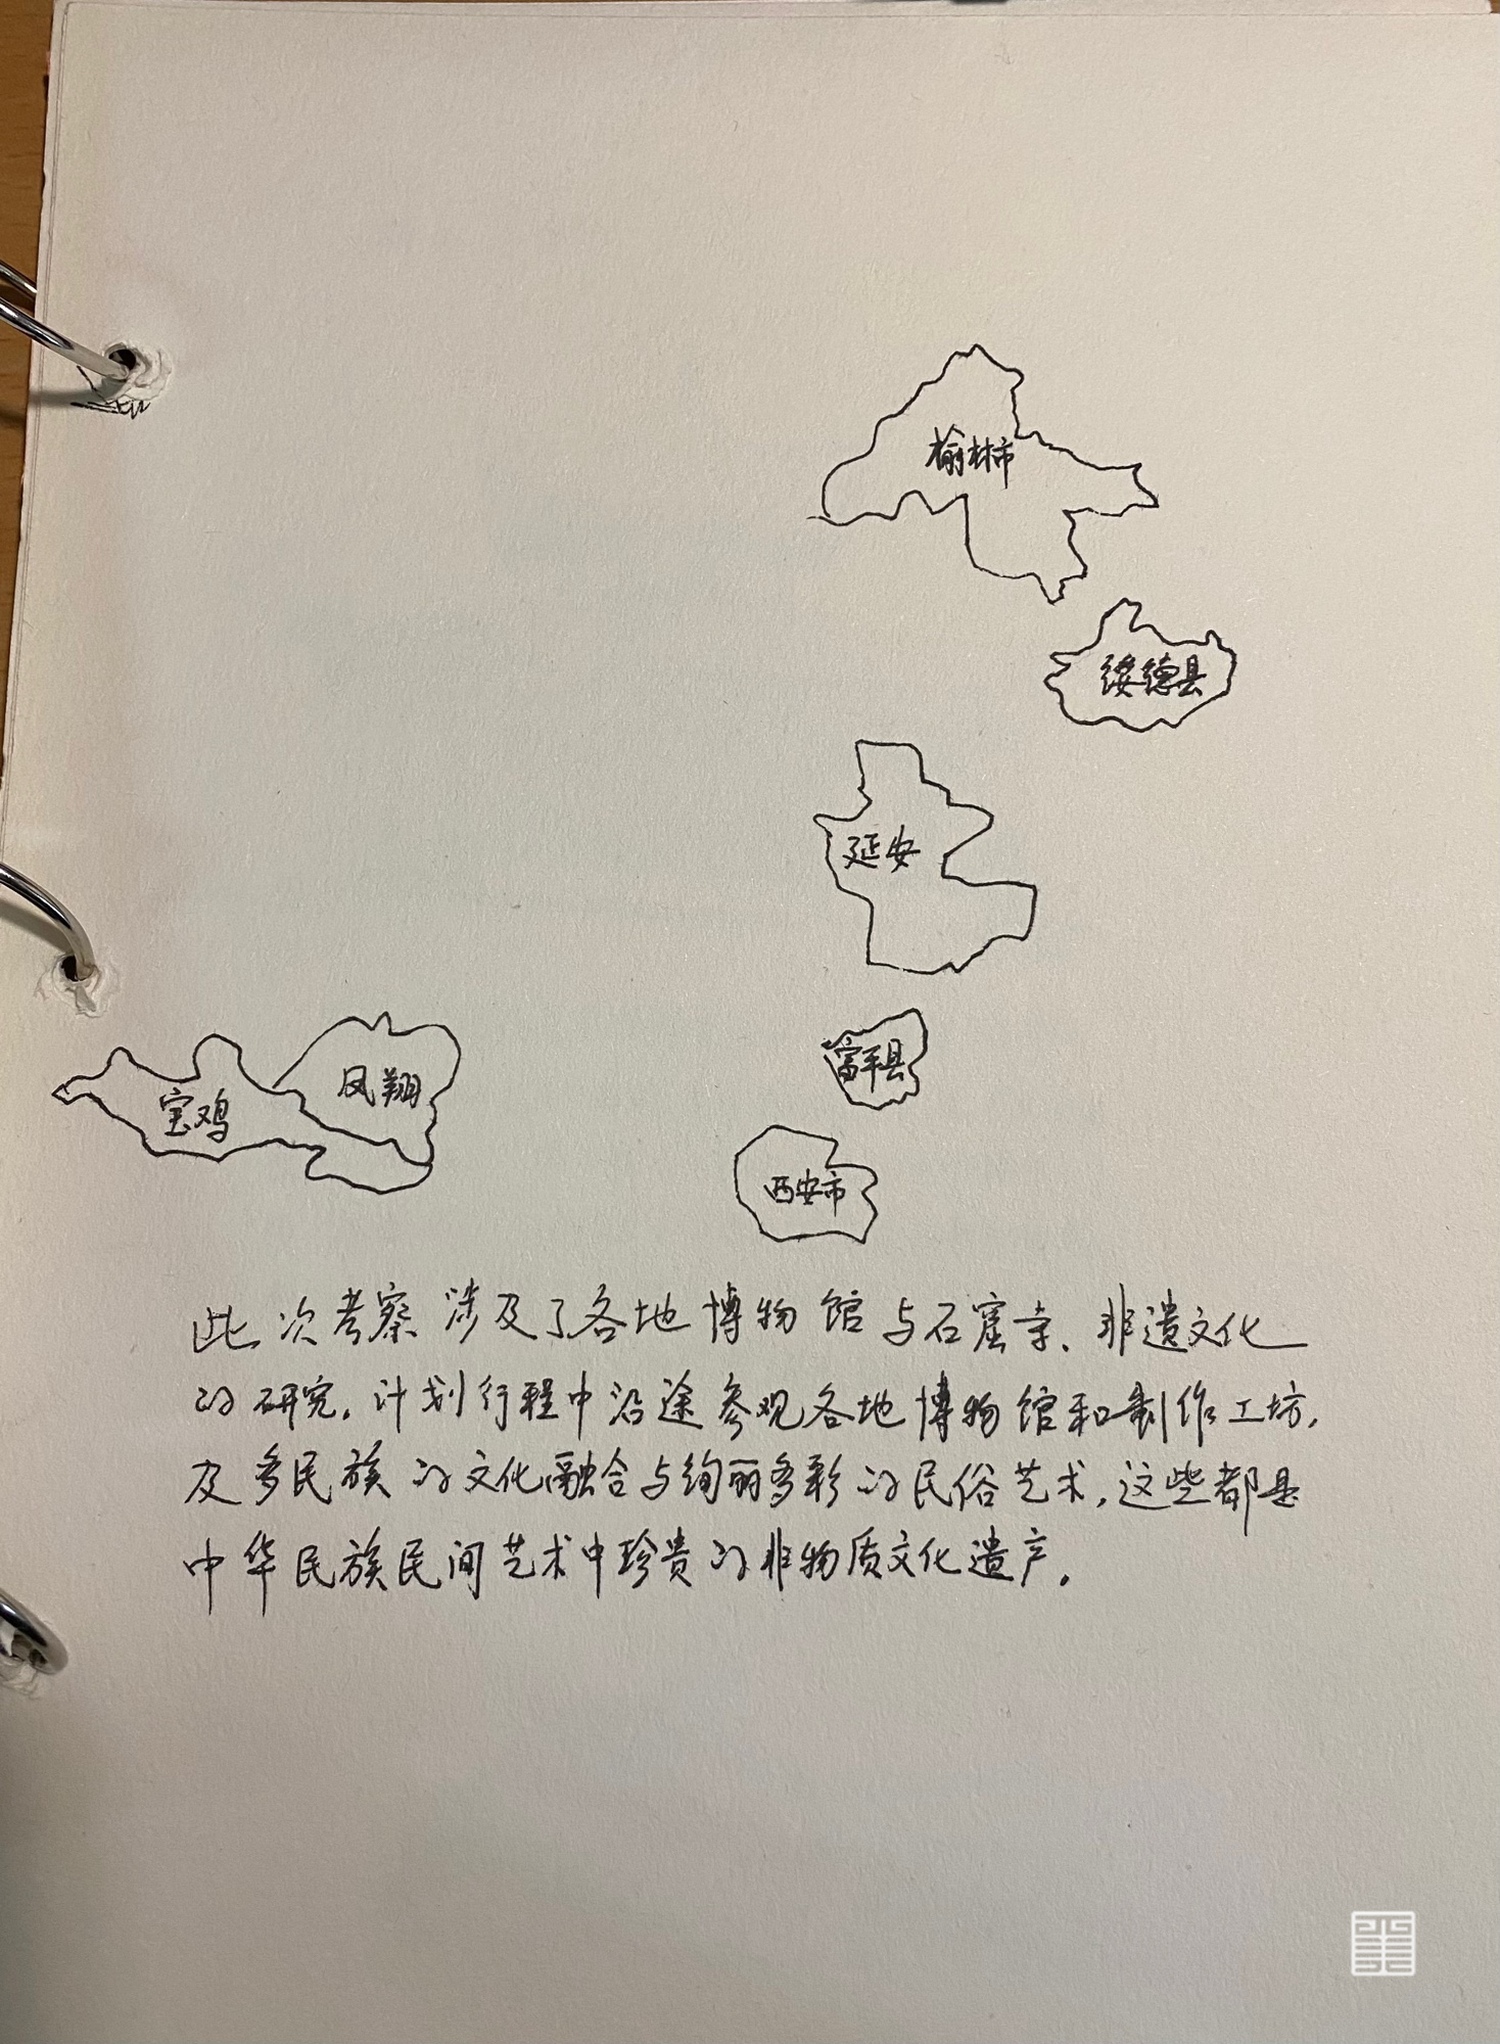 榆林市
绥德县
延安
富平县
凤翔
宝鸡
西安市
此次考察涉及了各地博物馆与石窟寺、非遗文化
的研究。计划行程中沿途参观各地博物馆和制作工坊,
及多民族的文化融合与绚丽多彩的民俗艺术,这些都是
中华民族民间艺术中珍贵的非物质文化遗产。